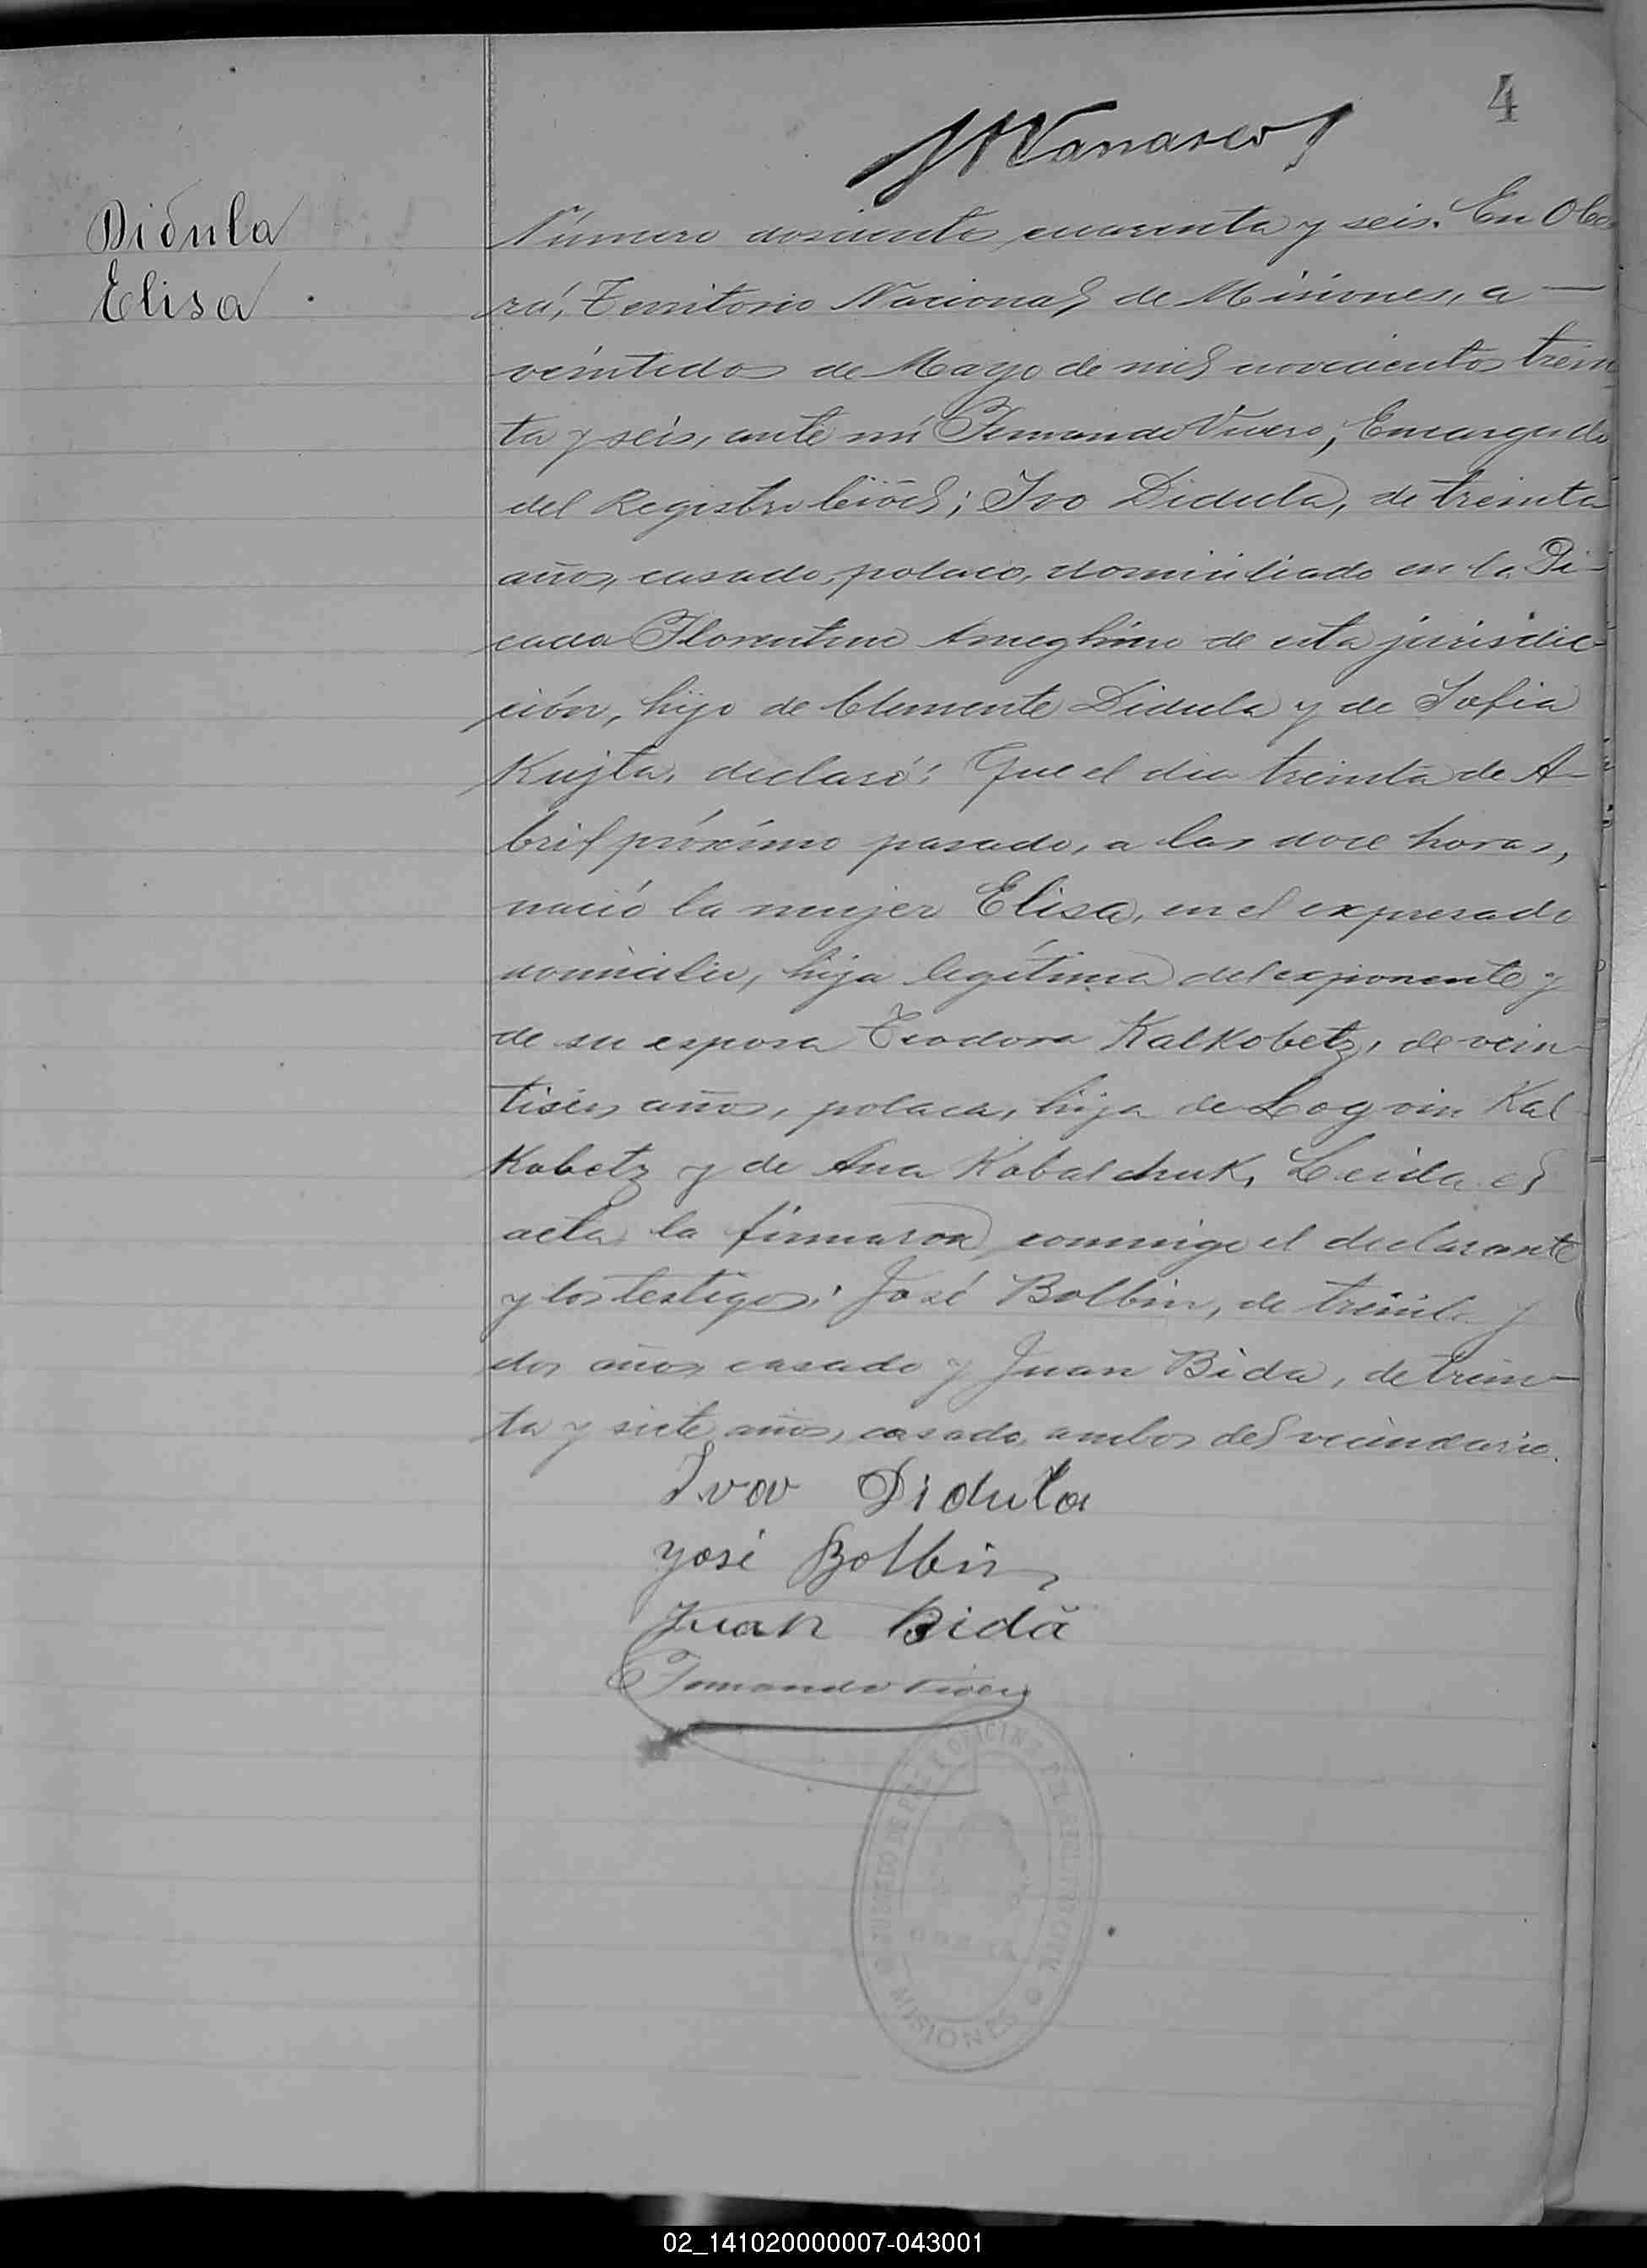 4
Didula
Elisa
Número doscientos cuarenta y seis. En Obe
rá, Territorio Nacional de Misiones, a —
veintidos de Mayo de mil novecientos trein
ta y seis, ante mí Fernando Vivero, Encargado
del Registro Civil; Ivo Didula, de treinta
años, casado, polaco, domiciliado en la Pi-
cada Florentino Ameghino de esta jurisdic-
ción, hijo de Clemente Didula y de Sofia
Kujta, declaró: Que el dia treinta de A-
bril próximo pasado, a las doce horas,
nació la mujer Elisa, en el expresado
domicilio, hija legítima del exponente y
de su esposa Teodora Kalkobetz, de vein-
tiséis años, polaca, hija de Logvin Kal-
Kobetz y de Ana Kobalchuk. Leida el
acta la firmaron conmigo el declarante
y los testigos: José Bolbin, de treinta y
dos años casado y Juan Bida, de trein-
ta y siete años, casado, ambos del vecindario.
Ivov Didula
José Bolbin
Juan Bida
Fernando Vivero
OFICINA DEL REGISTRO CIVIL
JUZGADO DE PAZ
MISIONES
02_141020000007-043001